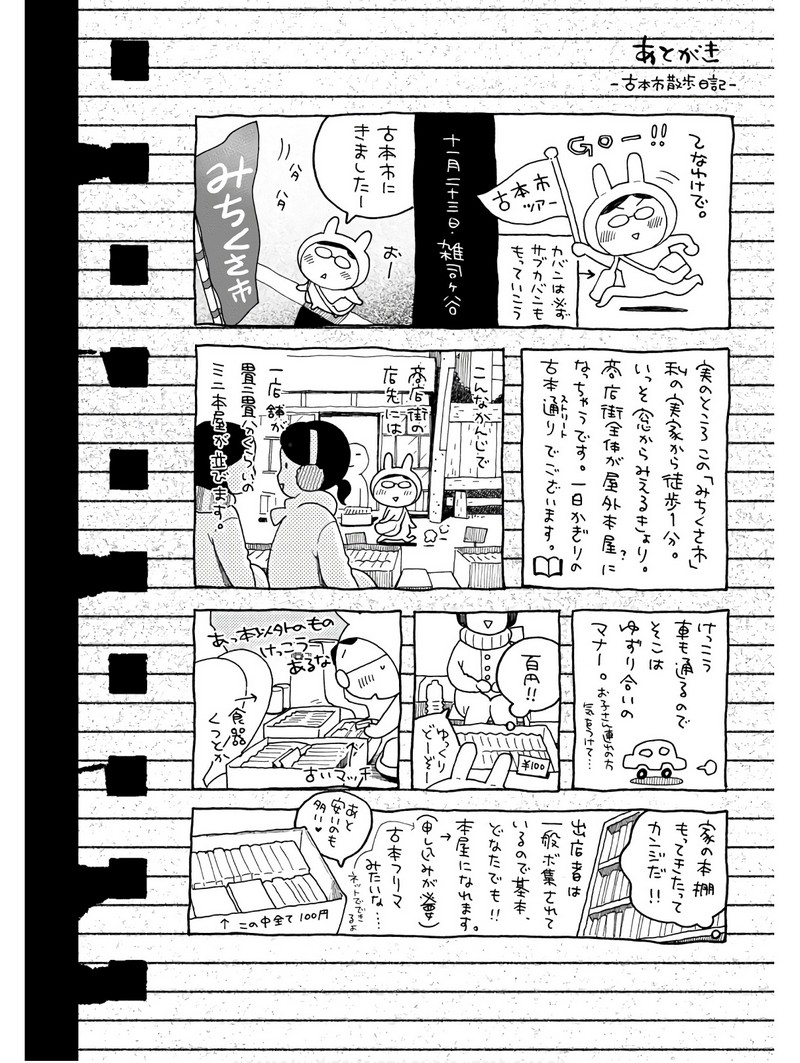 あとがき
-古本市散歩日記-
てなわけで。
GO-!!
古本市
ツアー
カバンは必ず
サブカバンも
もっていこう
十一月二十三日・雑司ヶ谷
古本市に
きましたー
おー
パタ
パタ
みちくさ市
実のところこの「みちくさ市」
私の実家から徒歩1分。
いっそ窓からみえるきょり。
商店街全体が屋外本屋?に
なっちゃうです。一日かぎりの
古本通りでございます。
ストリート
こんなかんじで
商店街の
店先には
一店舗が
畳二畳分くらいの
ミニ本屋が並びます。
けっこう
車も通るので
そこは
ゆずり合いの
マナー。
お子さん連れの方
気をつけて…
百円!!
¥100
ゆっくり
どーぞー
あっ本以外のもの
けっこう
あるな
古いマッチ
食器
くつとか
家の本棚
もってきたって
カンジだ!!
出店者は
一般ボ集されて
いるので基本、
どなたでも!!
本屋になれます。
(申し込みが必要)
古本フリマ
みたいな…
ネットでできるよ
あと
安いのも
多い♥
↑この中全て100円